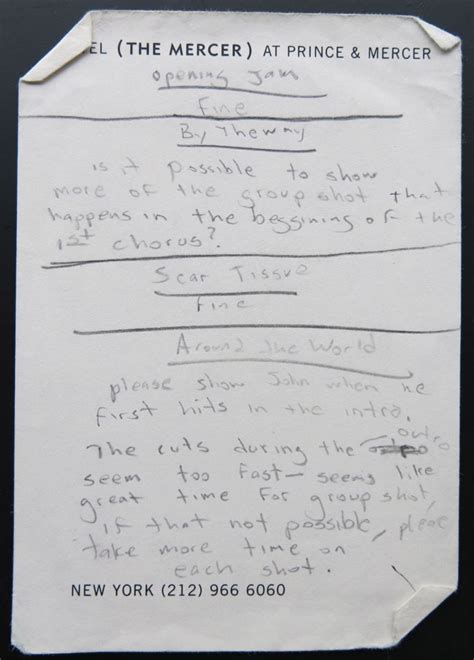 EL (THE MERCER) AT PRINCE & MERCER
Opening Jam
Fine
By Theway
is it possible to show
more of the group shot that
happens in the beggining of the
1st chorus?
Scar Tissue
Fine
Around the World
please show John when he
first hits in the intro.
The cuts during the outro
seem too fast— seems like
great time for group shot,
if that not possible, pleac
take more time on
each shot.
NEW YORK (212) 966 6060